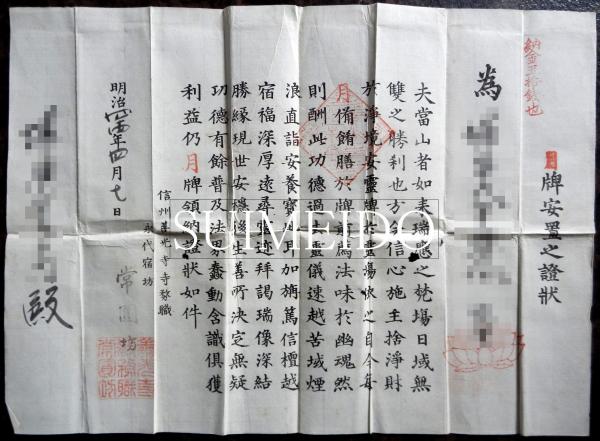 納金五拾錢也
月牌安置之證狀
為
夫當山者如来瑞應之梵場日域無
雙之勝利也方今信心施主捨淨財
於淨境安靈牌於靈場依之自今每
月備餚膳於牌前為法味於幽魂然
則酬此功德過去靈儀速越苦域煙
浪直詣安養寶地耳加旃篤信檀越
宿福深厚遠尋靈迹拜謁瑞像深結
勝緣現世安穩後生善所決定無疑
功德有餘普及法界蠢動含識俱獲
利益仍月牌領納證狀如件
信州善光寺寺務職
永代宿坊
常圓坊
明治四四年四月七日
殿
SUIMEIDO